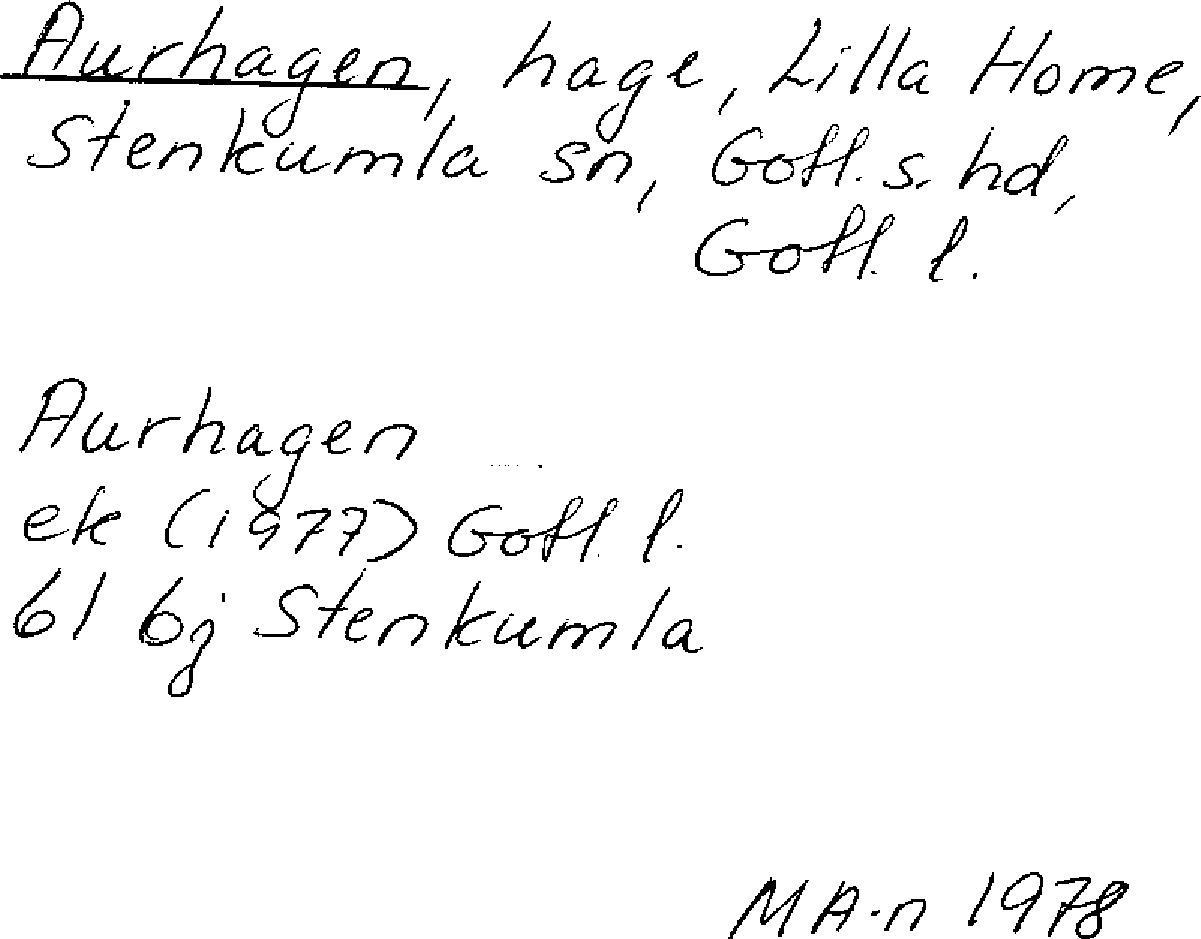 Aurhagen, hage, Lilla Home,
Stenkumla sn, Gotl. s. hd,
Gotl. l.
Aurhagen
ek (1977) Gotl. l.
6I 6j Stenkumla
MA-n 1978